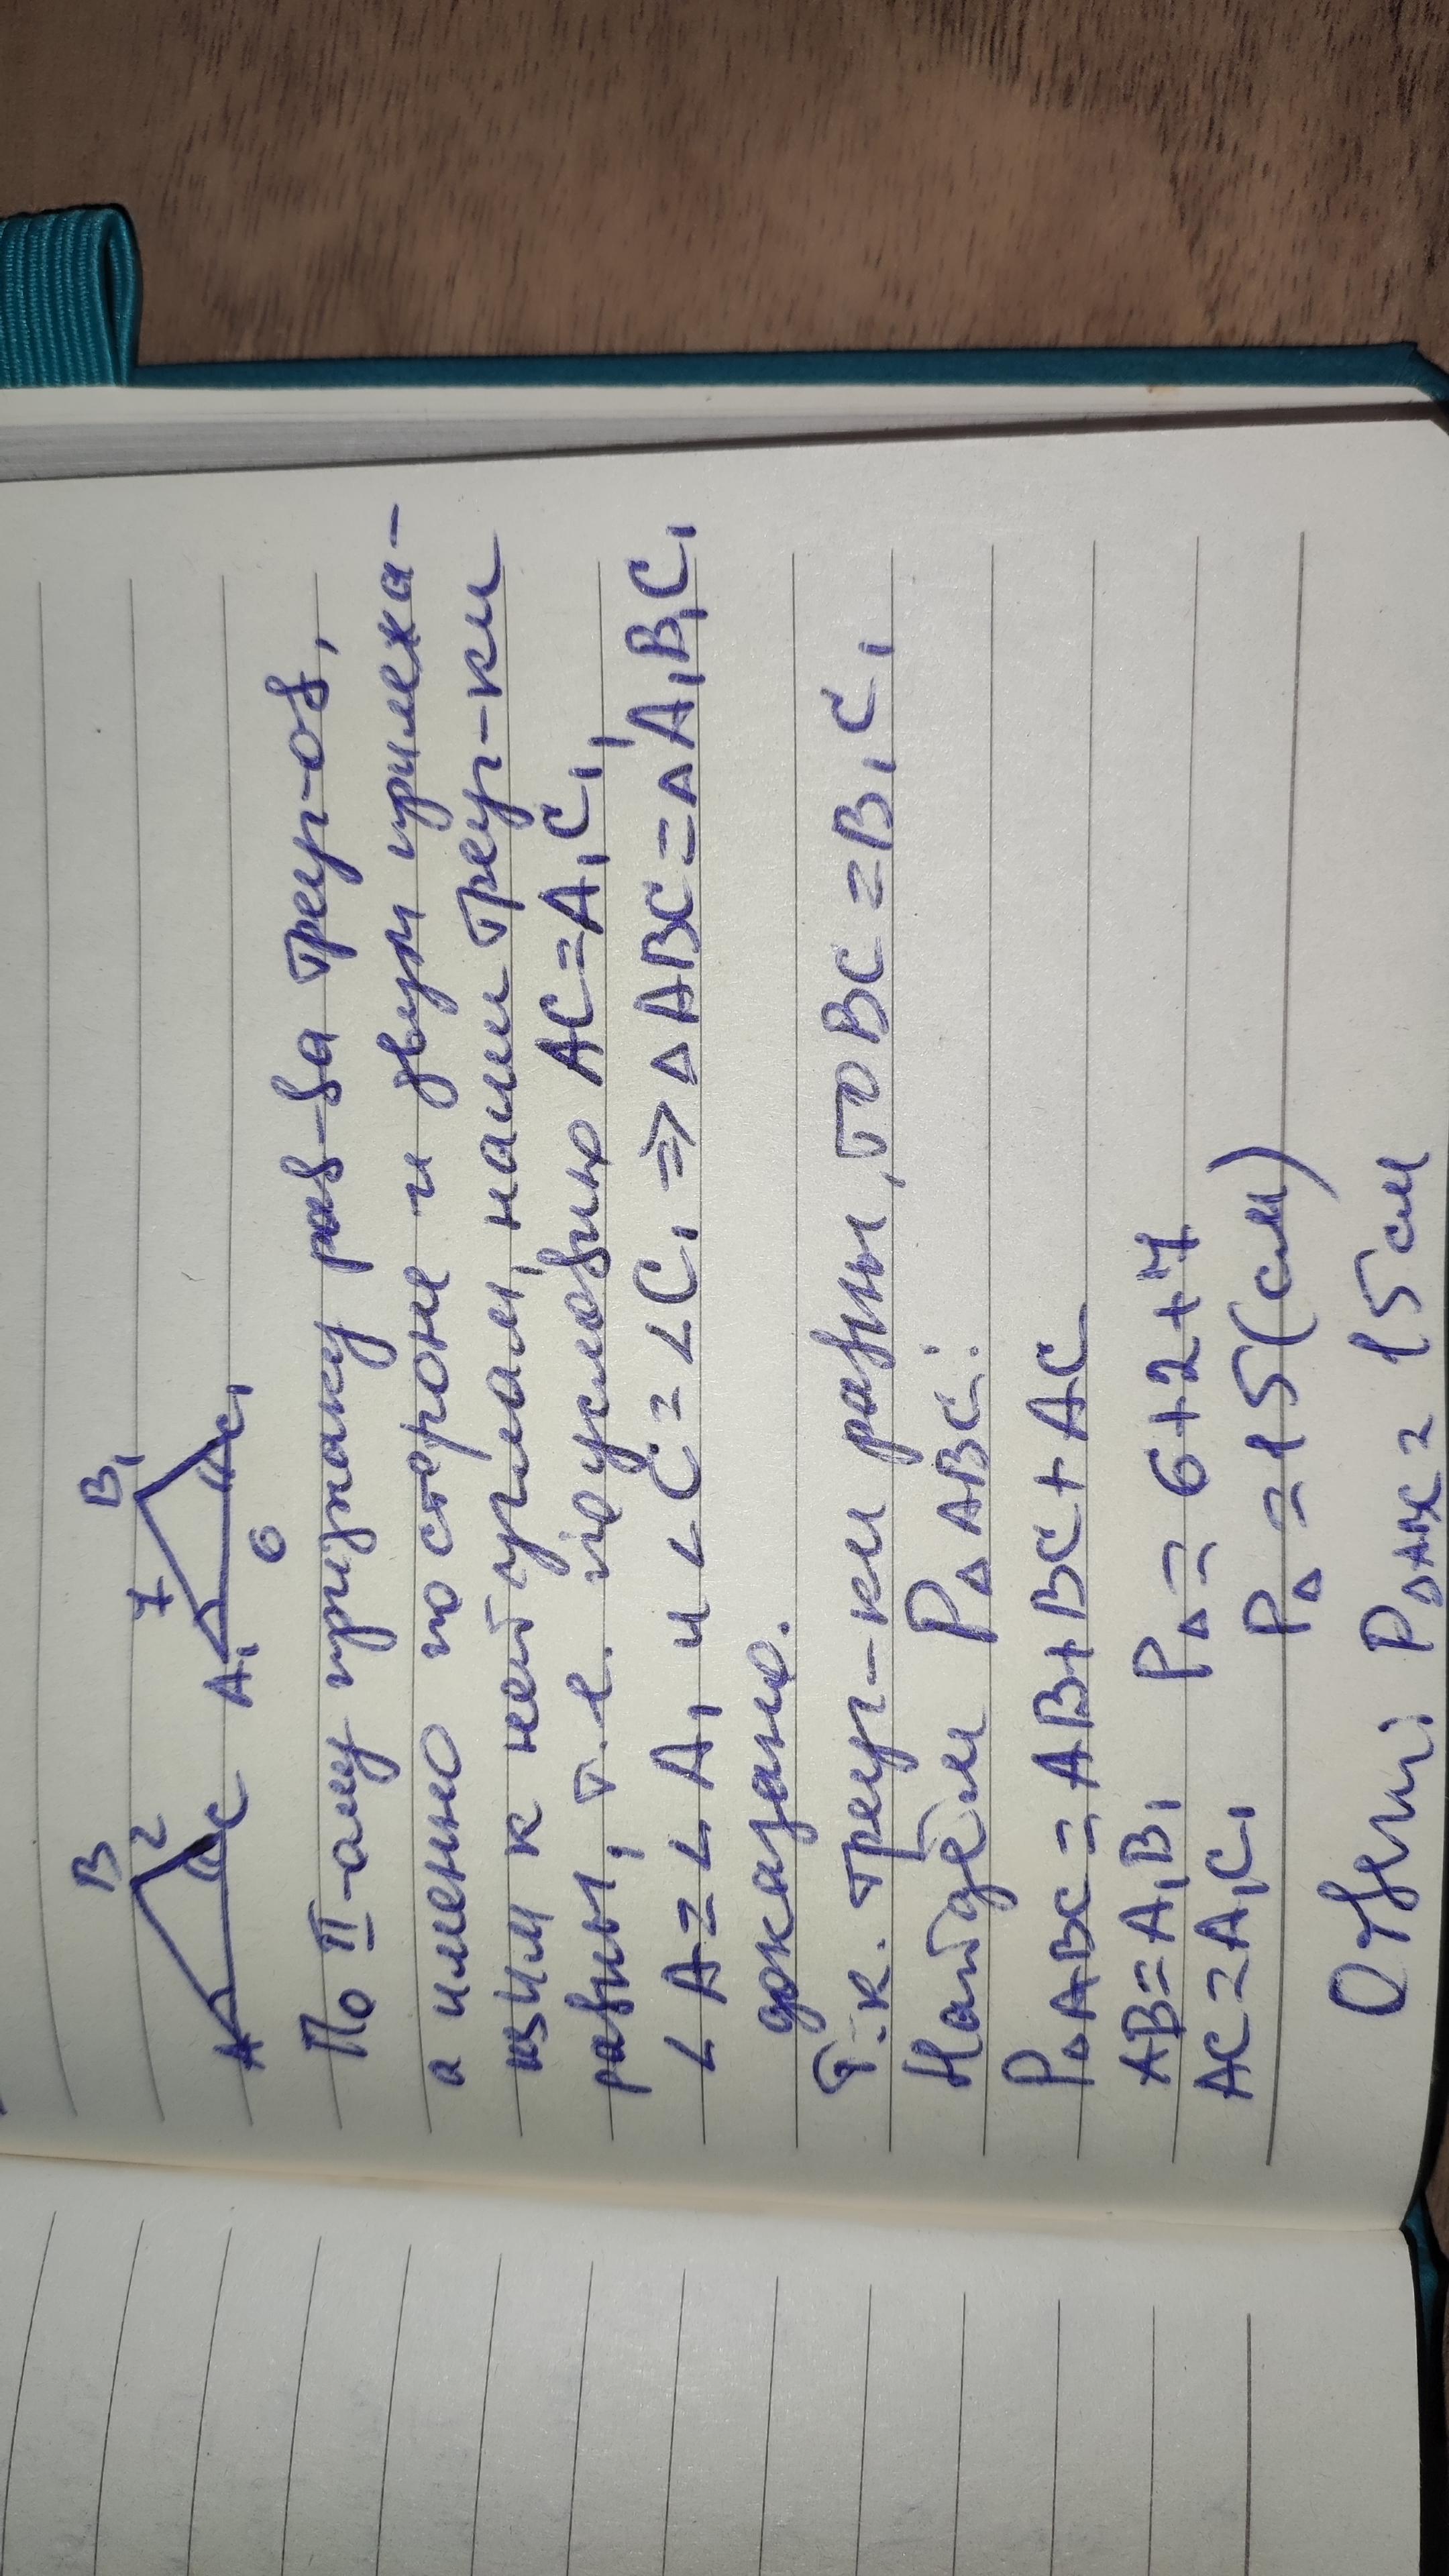 B B₁
2 7
A C A₁ C₁
6
По II-ому признаку рав-ва треуг-ов,
а именно по стороне и двум прилежа-
щим к ней углам, наши треуг-ки
равны, т.е. по условию AC=A₁C₁,
∠A=∠A₁ и ∠C=∠C₁ ⇒ △ABC=△A₁B₁C₁
доказано.
Т.к. треуг-ки равны, то BC=B₁C₁
Найдём P△ABC:
P△ABC=AB+BC+AC
AB=A₁B₁ P△=6+2+7
AC=A₁C₁ P△=15(см)
Ответ: P△ABC=15см